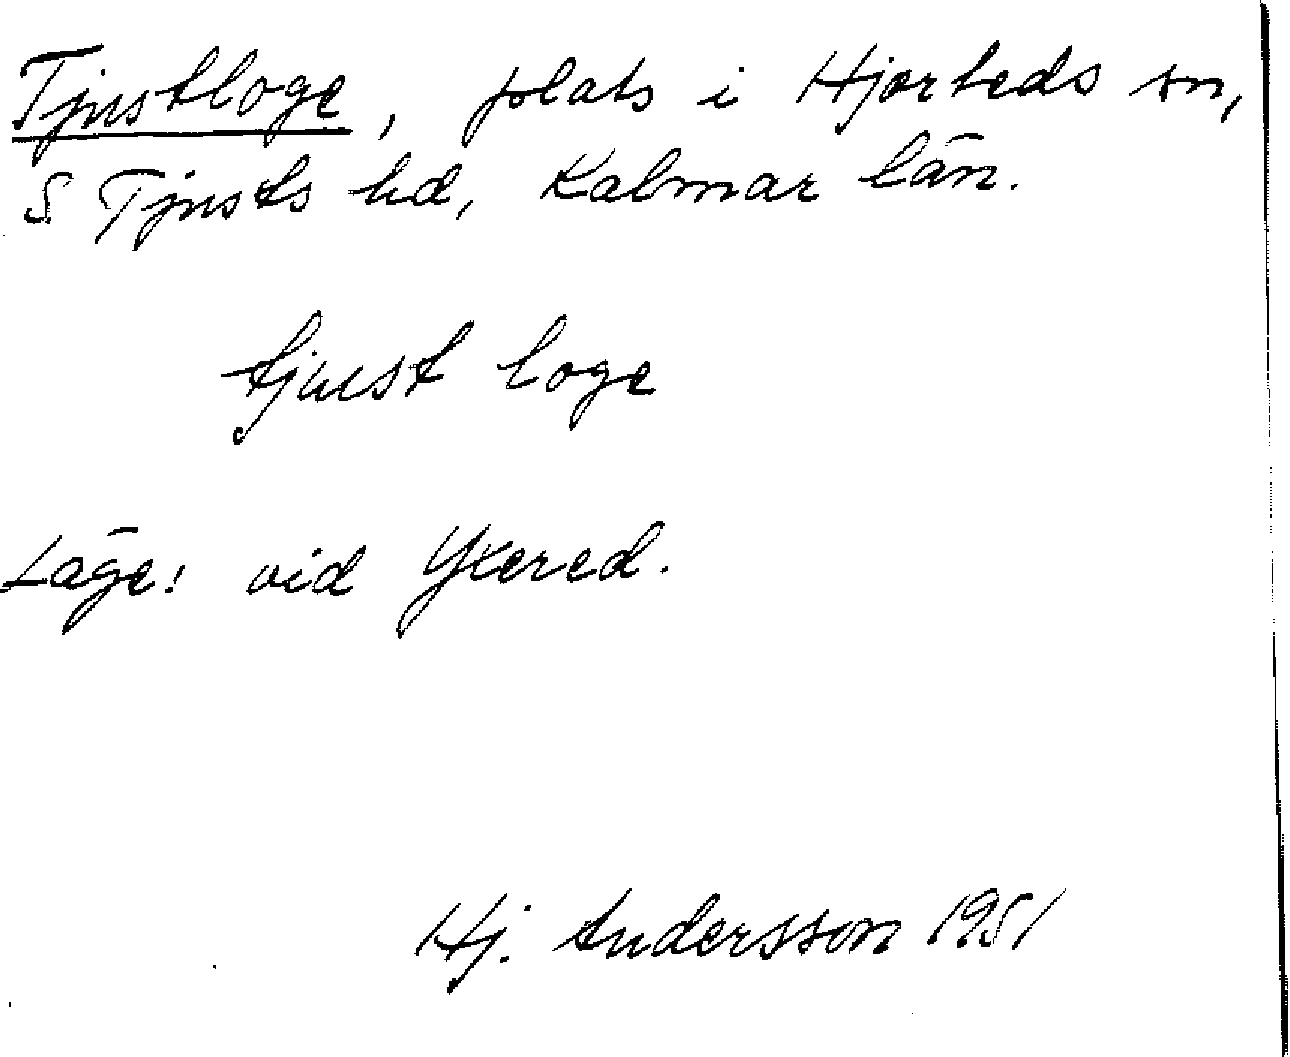 Tjustloge, plats i Hjorteds sn,
S. Tjusts hd, Kalmar län.
tjust loge
Läge: vid Ykered.
Hj. Andersson 1951